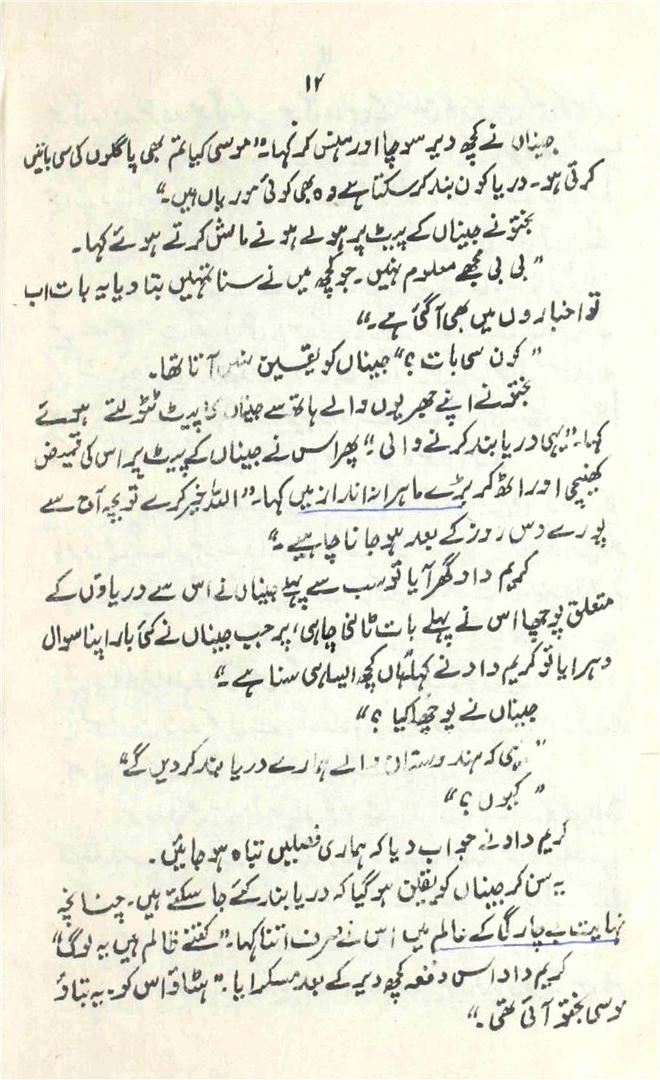 ۱۲
جیناں نے کچھ دیر سوچا اور ہنس کر کہا۔ ”موسی کیا تم بھی پاگلوں کی سی باتیں
کرتی ہو۔ دریا کون بند کر سکتا ہے وہ بھی کوئی موریاں ہیں۔“
بختو نے جیناں کے پیٹ پر ہولے ہولے مالش کرتے ہوئے کہا۔
”بی بی مجھے معلوم نہیں۔ جو کچھ میں نے سنا تمہیں بتا دیا یہ بات اب
تو اخباروں میں بھی آ گئی ہے۔“
”کون سی بات؟“ جیناں کو یقین نہیں آتا تھا۔
بختو نے اپنے جھریوں والے ہاتھ سے جیناں کا پیٹ ٹٹولتے ہوئے
کہا۔ ”یہی دریا بند کرنے والی۔“ پھر اس نے جیناں کے پیٹ پر اس کی قمیض
کھینچی اور اٹھ کر بڑے ماہرانہ انداز میں کہا۔ ”اللہ خیر کرے تو بچہ آج سے
پورے دس روز کے بعد ہو جانا چاہیے۔“
کریم داد گھر آیا تو سب سے پہلے جیناں نے اس سے دریاؤں کے
متعلق پوچھا اس نے پہلے بات ٹالنی چاہی، پر جب جیناں نے کئی بار اپنا سوال
دہرایا تو کریم داد نے کہا ”ہاں کچھ ایسا ہی سنا ہے۔“
جیناں نے پوچھا کیا؟“
”یہی کہ ہندوستان والے ہمارے دریا بند کر دیں گے“
”کیوں؟“
کریم داد نے جواب دیا کہ ہماری فصلیں تباہ ہو جائیں۔
یہ سن کر جیناں کو یقین ہو گیا کہ دریا بند کئے جا سکتے ہیں۔ چنانچہ
نہایت بے چارگی کے عالم میں اس نے صرف اتنا کہا۔ ”کتنے ظالم ہیں یہ لوگ“
کریم داد اس دفعہ کچھ دیر کے بعد مسکرایا۔ ”ہٹاؤ اس کو۔ یہ بتاؤ
موسی بختو آئی تھی۔“